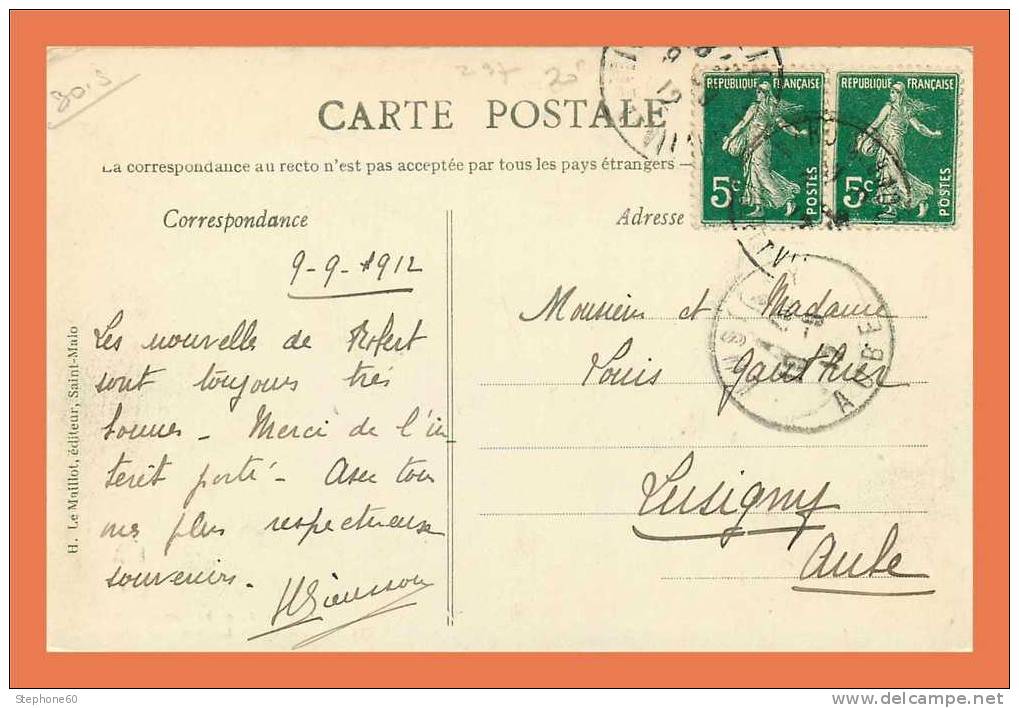 30.5
CARTE POSTALE
La correspondance au recto n'est pas acceptée par tous les pays étrangers
REPUBLIQUE FRANÇAISE
5c
POSTES
REPUBLIQUE FRANÇAISE
5c
POSTES
Correspondance
Adresse
9-9-1912
Les nouvelle de Robert
sont toujours très
bonnes - Merci de l'in-
térêt porté - Avec tous
mes plus respectueux
souvenirs.
Monsieur et Madame
Louis Gauthier
Lusigny
Aube
AUBE
H. Le Maillot, éditeur, Saint-Malo
Stephone60
www.delcampe.net